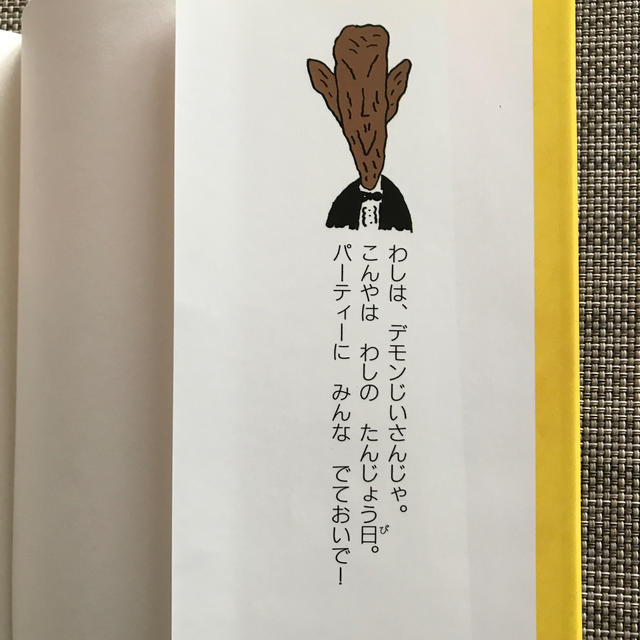 わしは、デモンじいさんじゃ。
こんやは　わしの　たんじょう日。
パーティーに　みんな　でておいで！